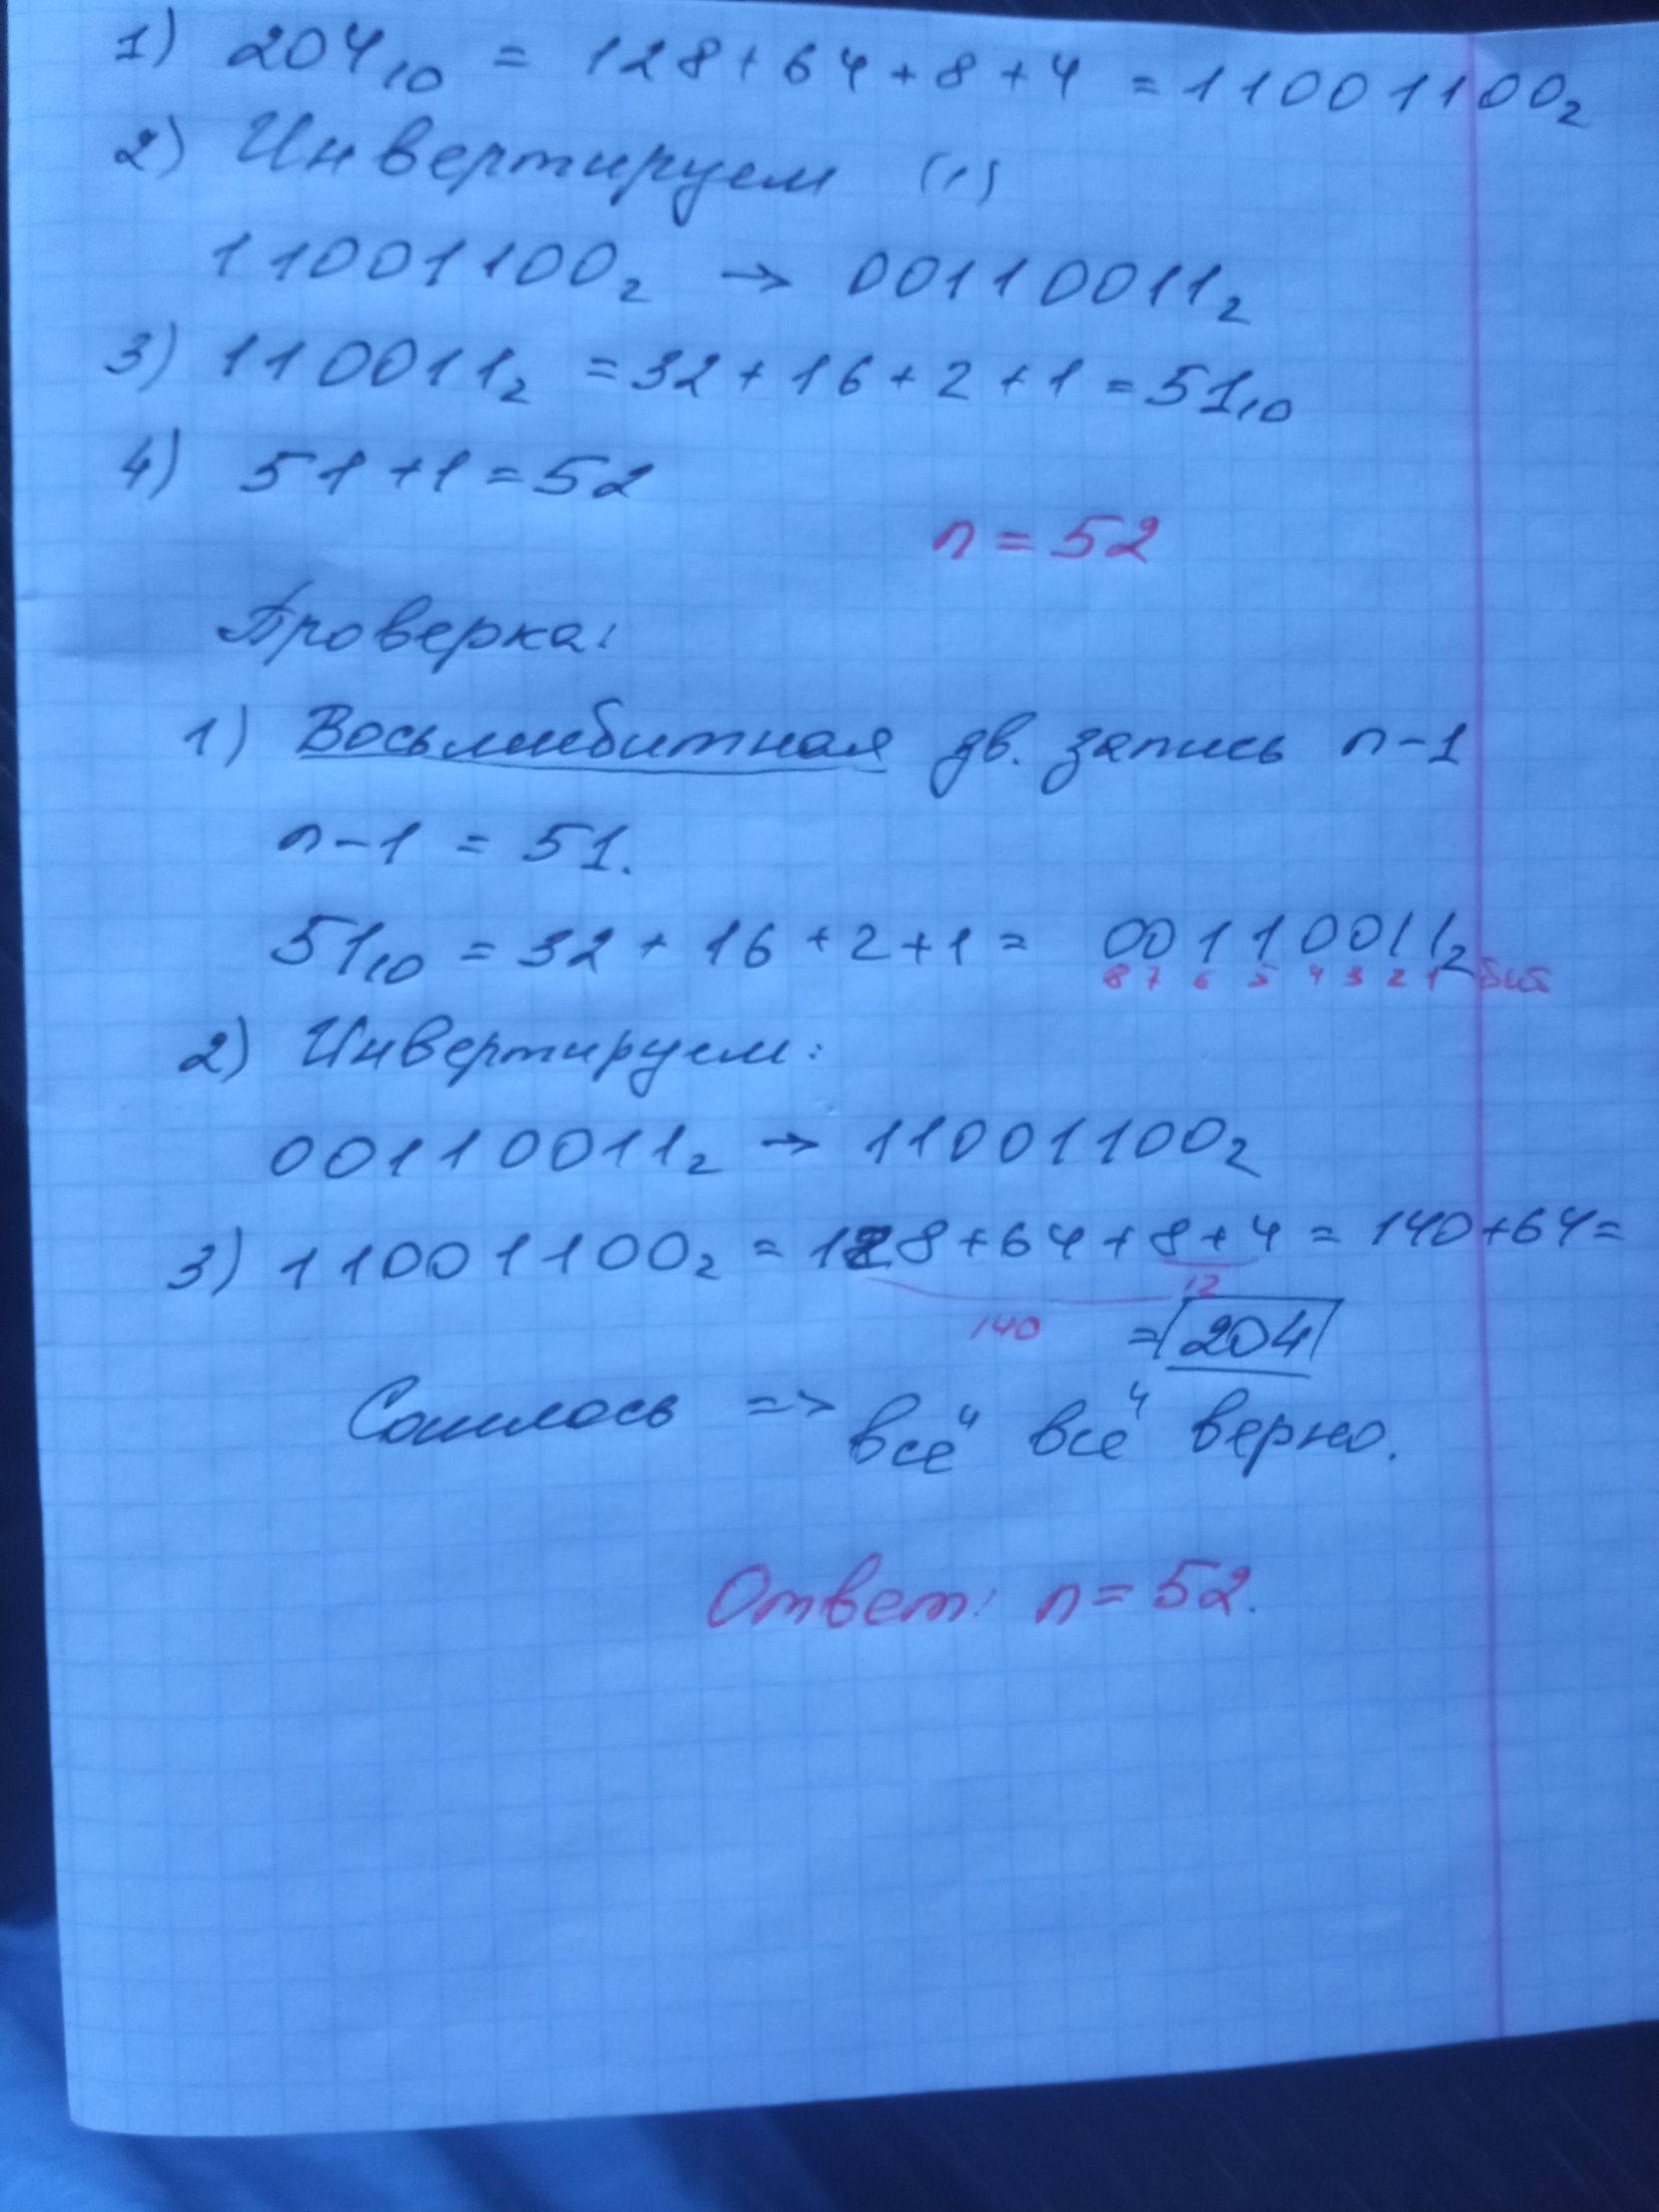 1) 204₁₀ = 128+64+8+4 = 11001100₂
2) Инвертируем (1)
11001100₂ → 00110011₂
3) 110011₂ = 32+16+2+1 = 51₁₀
4) 51+1=52
n = 52
Проверка:
1) Восьмибитная дв. запись n-1
n-1 = 51.
51₁₀ = 32 + 16 + 2 + 1 = 00110011₂
8 7 6 5 4 3 2 1
2) Инвертируем:
00110011₂ → 11001100₂
3) 11001100₂ = 128+64+8+4 = 140+64=
12
140 = 204
Сошлось => всё" всё" верно.
Ответ: n = 52.